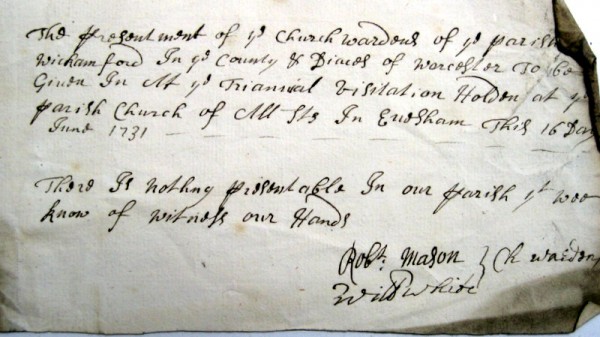 The presentment of ye Church wardens of ye parish
Wickamford In ye County & Dioces of Worcester To be
Given In At ye Triannial Visitation Holden at ye
parish Church of All Sts In Evesham This 16 Day
June 1731
There Is nothng presentable In our parish yt wee
know of witness our Hands
Robt. Mason } Ch warden
Will White